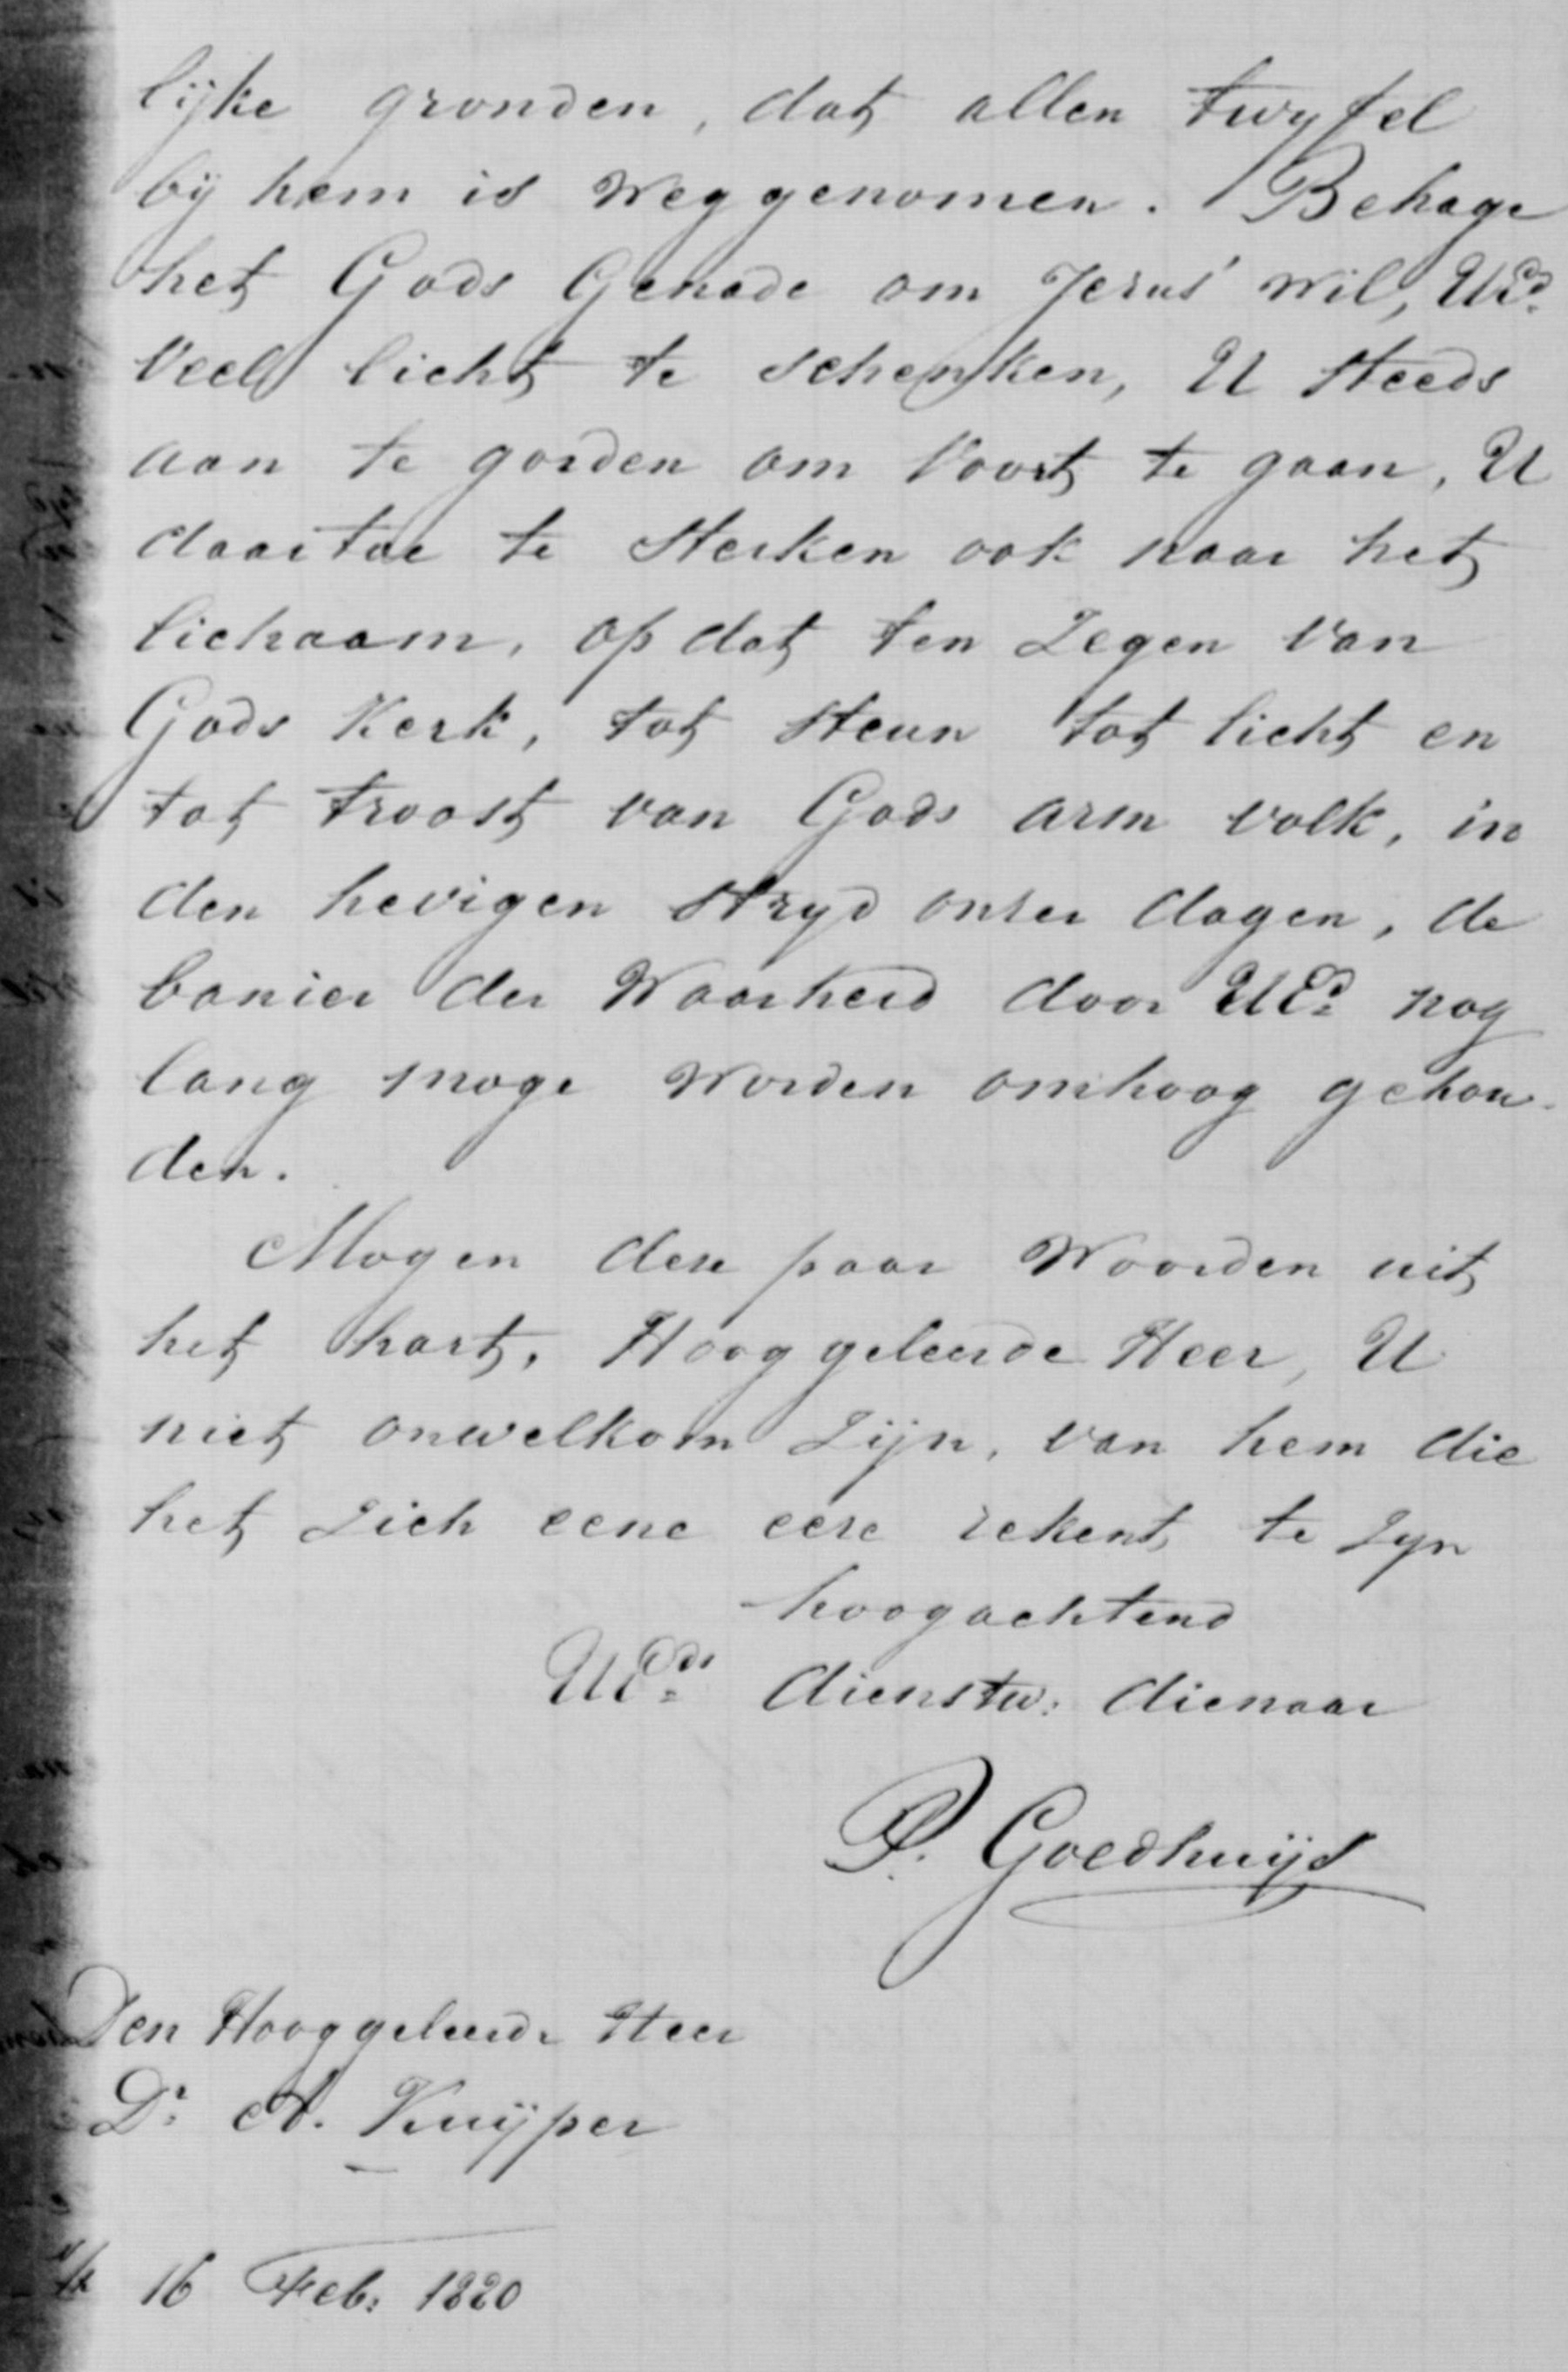 lijke gronden, dat allen twyfel
bij hem is weggenomen. Behage
het Gods Genade om Jezus' wil, UEd.
veel licht te schenken, U steeds
aan te gorden om voort te gaan, U
daartoe te sterken ook naar het
lichaam, opdat ten zegen van
Gods Kerk, tot steun tot licht en
tot troost van Gods arm volk, in
den hevigen stryd onzer dagen, de
banier der Waarheid door UEd. nog
lang moge worden omhoog gehou-
den.
Mogen deze paar woorden uit
het hart, Hooggeleerde Heer, U
niet onwelkom zijn, van hem die
het zich eene eere rekent te zyn
hoogachtend
UEds. dienstw: dienaar
P. Goedhuijs
Den Hooggeleerde Heer
Dr. A. Kuijper
16 Feb: 1880